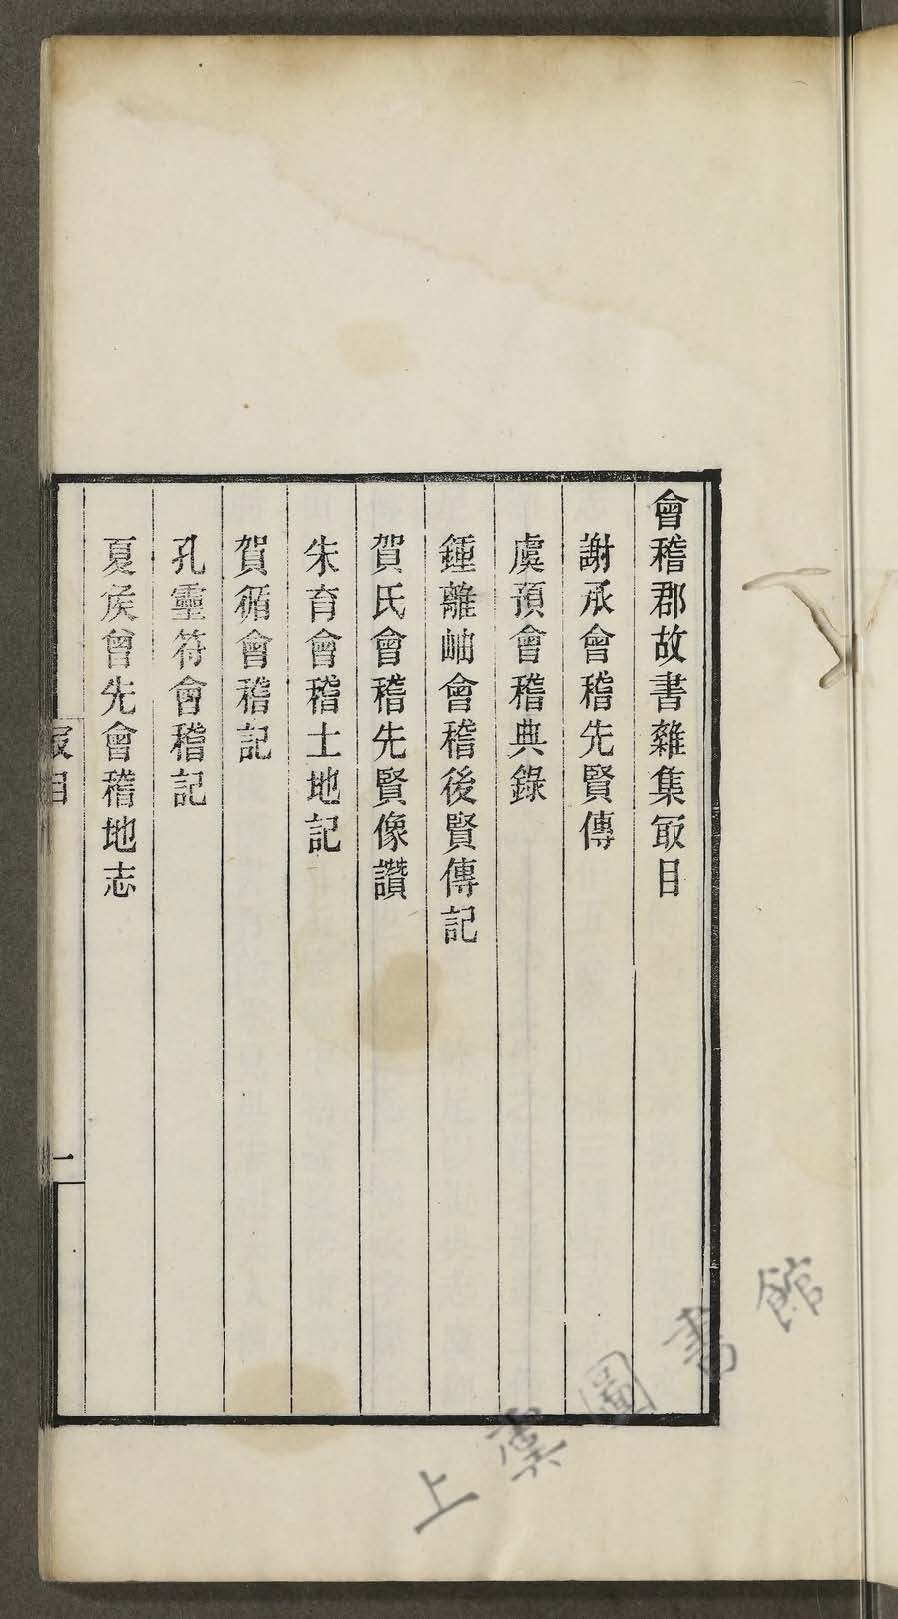 會稽郡故書雜集冣目
謝承會稽先賢傳
虞預會稽典錄
鍾離岫會稽後賢傳記
賀氏會稽先賢像讚
朱育會稽土地記
賀循會稽記
孔靈符會稽記
夏侯曾先會稽地志
冣目
一
上虞圖書館